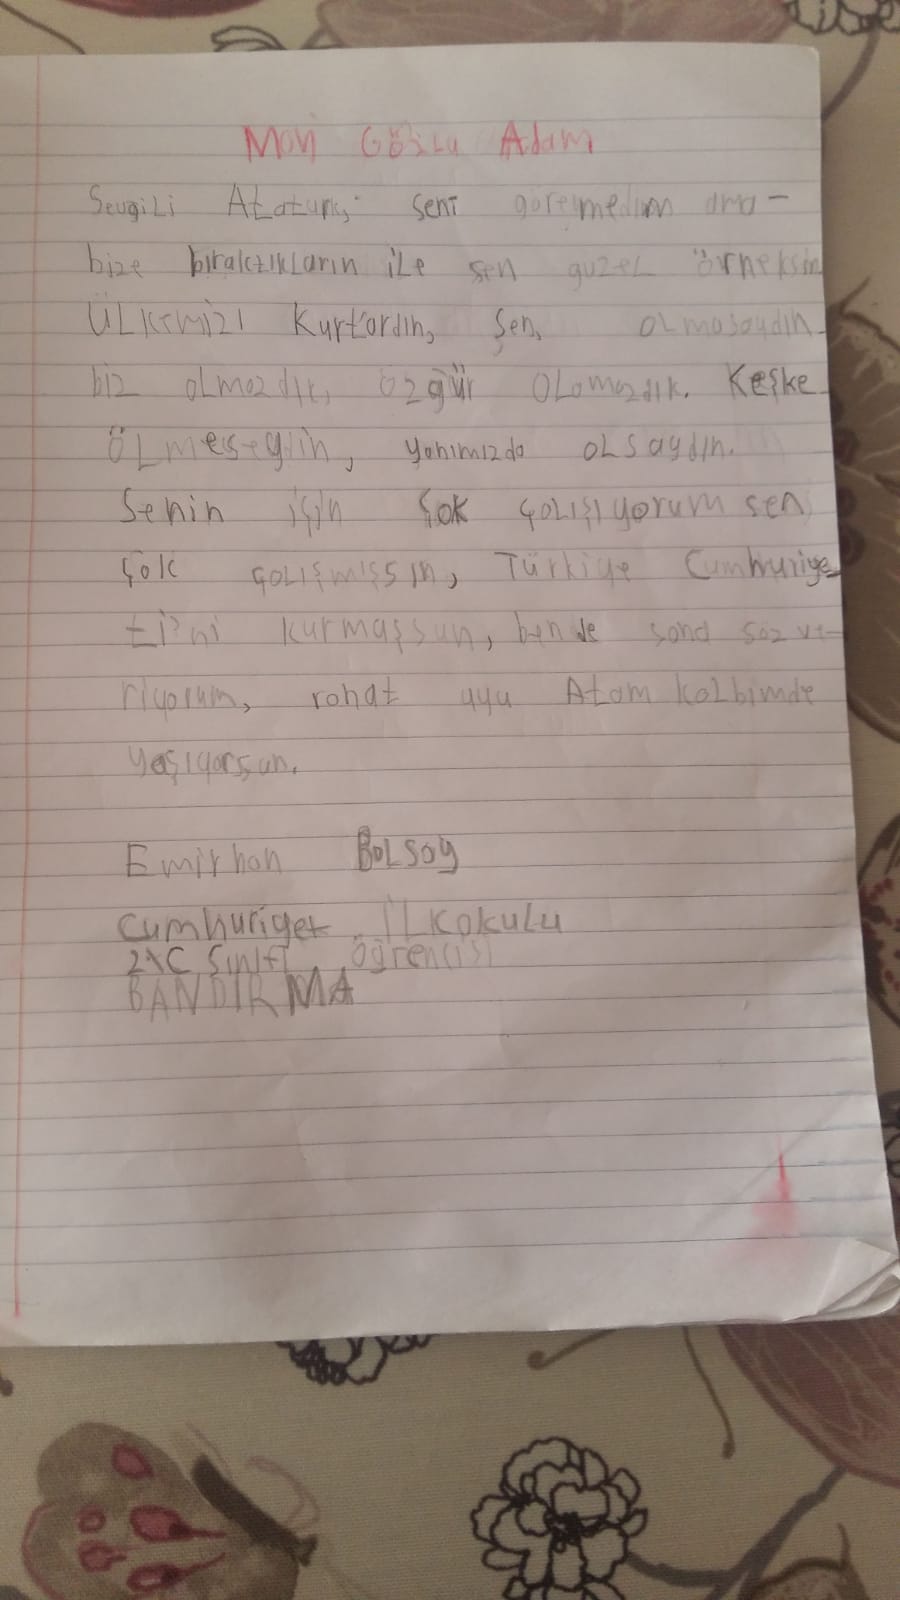 Mavi Gözlu Adam
Sevgili Atatürk, seni göremedim ama-
bize bıraktıkların ile sen guzel örneksin
Ülkemizi Kurtardın, Sen, olmasaydın
biz olmazdık, özgür olamazdık. Keşke
ölmeseydin, yanımızda olsaydın.
Senin için çok çalışıyorum sen
çok çalışmışsın, Türkiye Cumhuriye
ti'ni kurmaşsun, bende sana söz ve-
riyorum, rahat uyu Atam kalbimde
yaşıyorsun.
Emirhan BOLSOY
Cumhuriyet İlkokulu
2\C Sınıfı öğrencisi
BANDIRMA